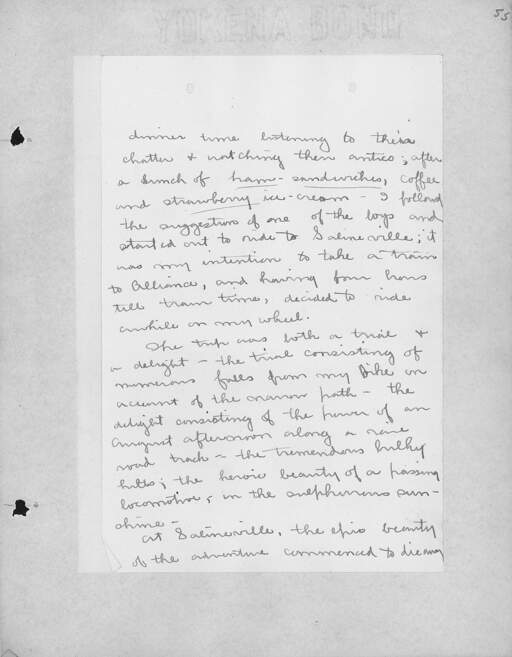 55
dinner time listening to their
chatter & watching their antics; after
a lunch of ham-sandwiches, coffee
and strawberry ice-cream - I followed
the suggestion of one of the boys and
started out to ride to Salineville; it
was my intention to take a train
to Alliance, and having four hours
till train time, decided to ride
awhile on my wheel.
The trip was both a trial &
a delight - the trial consisting of
numerous falls from my bike on
account of the narrow path - the
delight consisting of the power of an
August afternoon along a rail
road track - the tremendous bulky
hills; the heroic beauty of a passing
locomotive, in the sulphurous sun-
shine -
At Salineville, the epic beauty
of the adventure commenced to die away